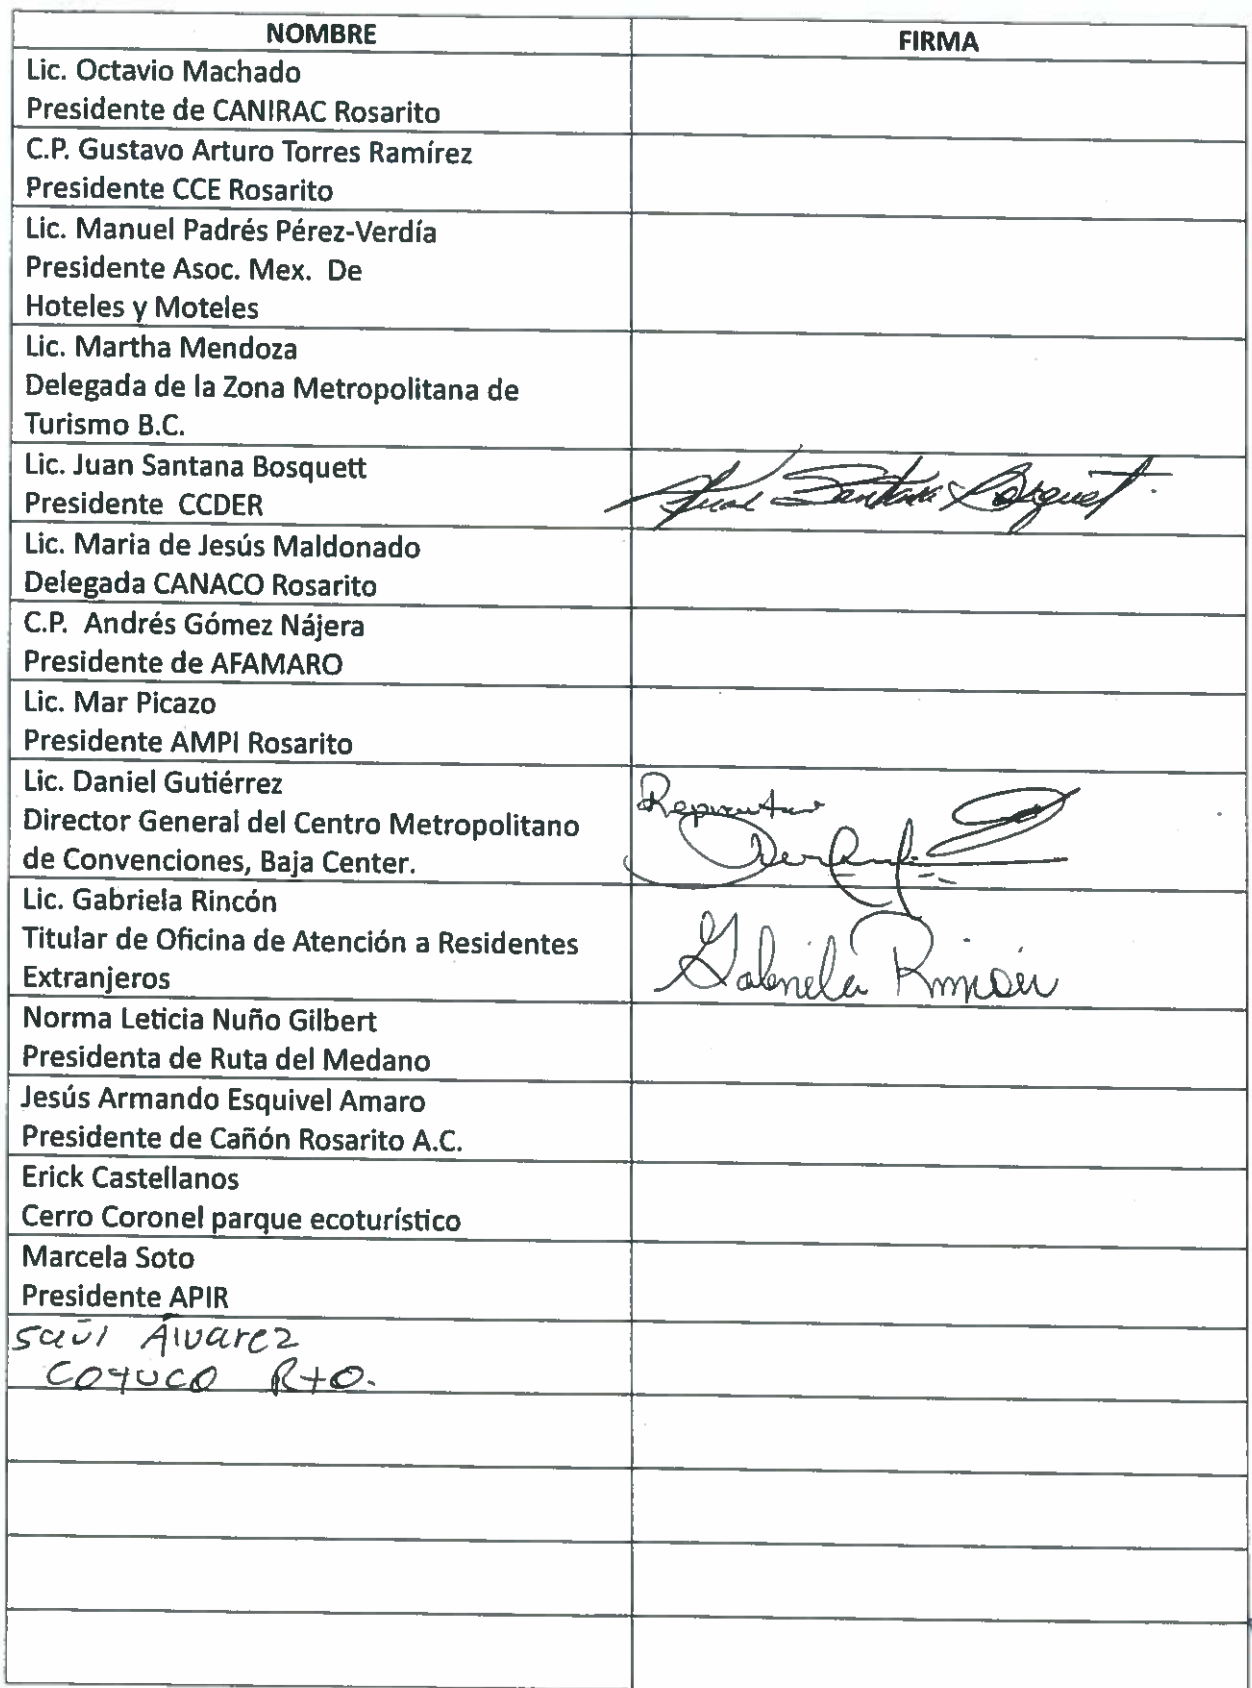 NOMBRE
FIRMA
Lic. Octavio Machado
Presidente de CANIRAC Rosarito
C.P. Gustavo Arturo Torres Ramírez
Presidente CCE Rosarito
Lic. Manuel Padrés Pérez-Verdía
Presidente Asoc. Mex. De
Hoteles y Moteles
Lic. Martha Mendoza
Delegada de la Zona Metropolitana de
Turismo B.C.
Lic. Juan Santana Bosquett
Presidente CCDER
Juan Santana Bosquet
Lic. Maria de Jesús Maldonado
Delegada CANACO Rosarito
C.P. Andrés Gómez Nájera
Presidente de AFAMARO
Lic. Mar Picazo
Presidente AMPI Rosarito
Lic. Daniel Gutiérrez
Director General del Centro Metropolitano
de Convenciones, Baja Center.
Lic. Gabriela Rincón
Titular de Oficina de Atención a Residentes
Extranjeros
Gabriela Rincón
Norma Leticia Nuño Gilbert
Presidenta de Ruta del Medano
Jesús Armando Esquivel Amaro
Presidente de Cañón Rosarito A.C.
Erick Castellanos
Cerro Coronel parque ecoturístico
Marcela Soto
Presidente APIR
Saúl Álvarez
COTUCO Rto.